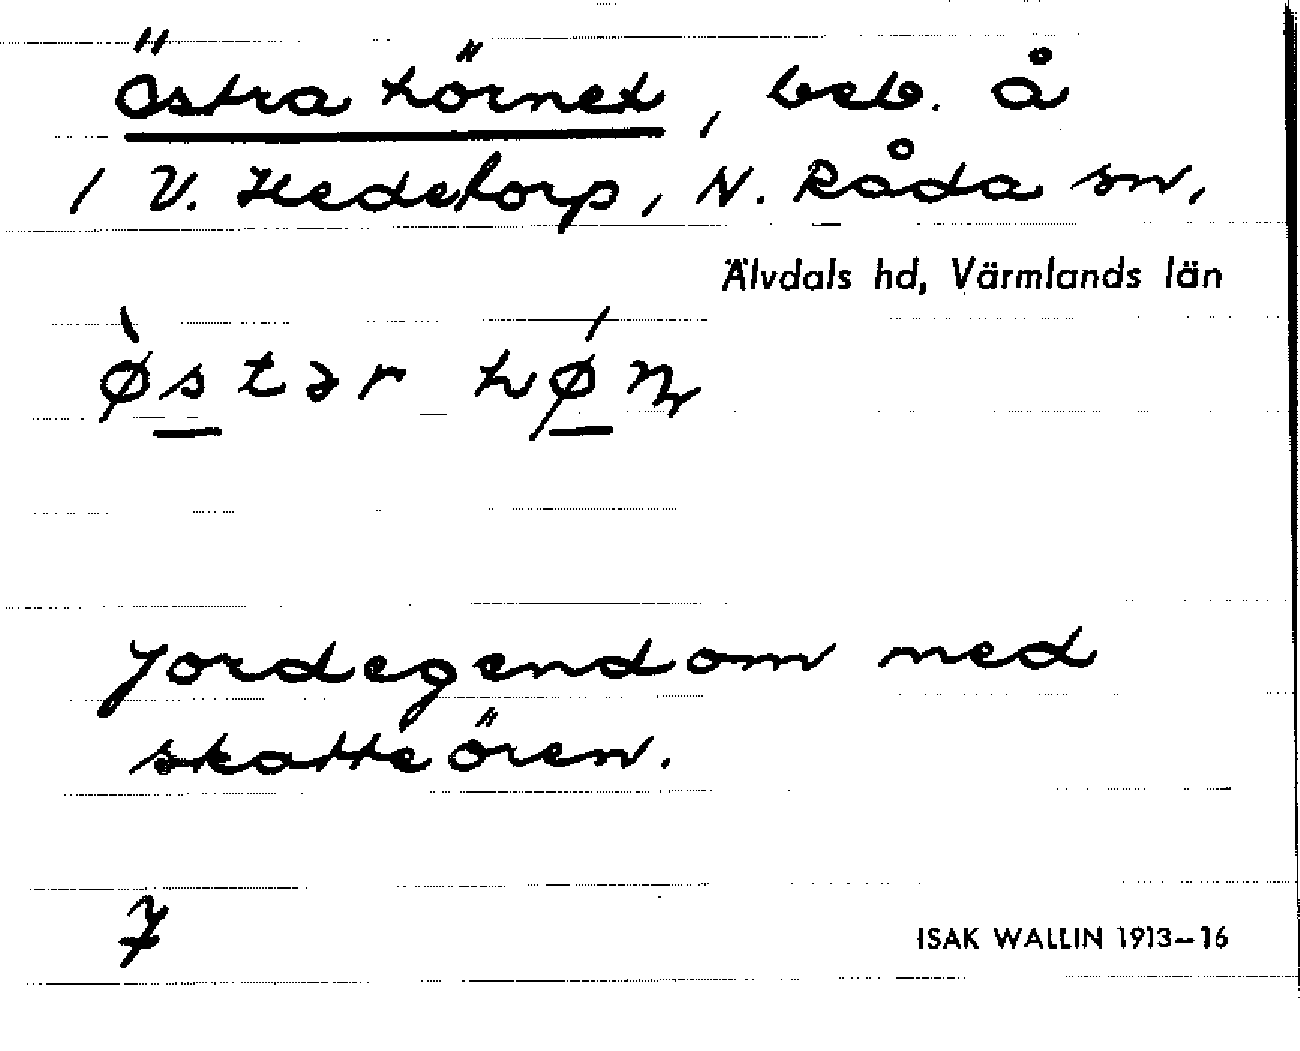 Östra hörnet, beb. å
1 V. Hedetorp, N. Råda sn,
Älvdals hd, Värmlands län
ø̀stər hǿn̥
Jordegendom med
skatteören.
7
ISAK WALLIN 1913–16